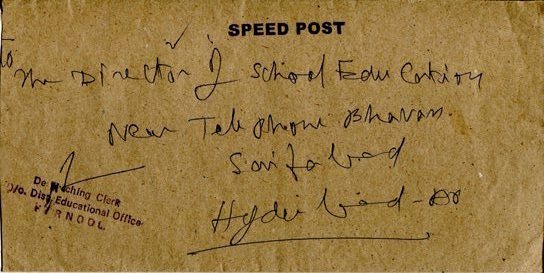 SPEED POST
To
The Director of School Education
Near Telephone Bhavan
Saifabad
Hyderabad - AP
Despatching Clerk
O/o. Dist. Educational Office
KURNOOL